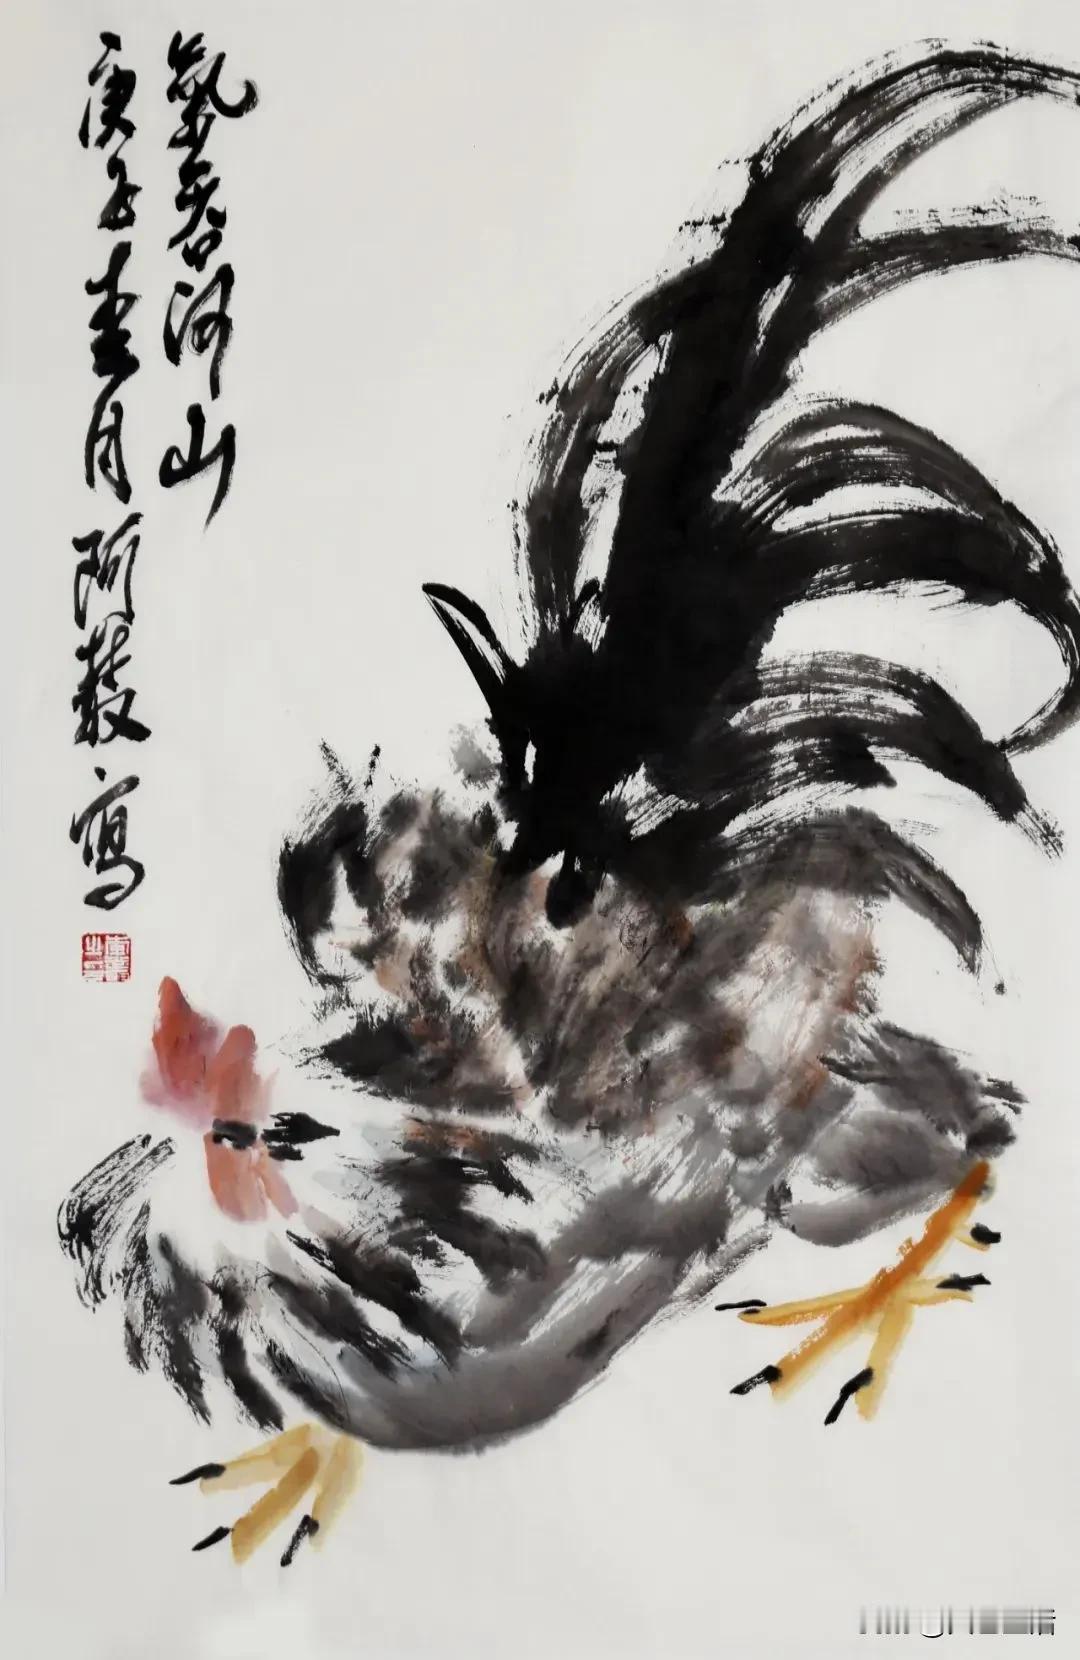 氣吞河山
庚子春月阿散寫